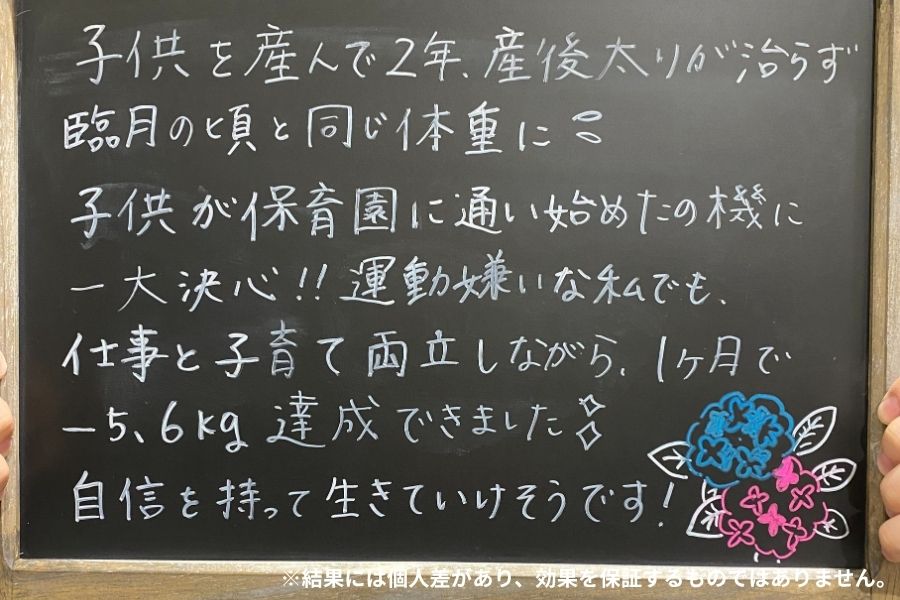 子供を産んで2年、産後太りが治らず
臨月の頃と同じ体重に
子供が保育園に通い始めたの機に
一大決心!!運動嫌いな私でも、
仕事と子育て両立しながら、1ヶ月で
-5、6kg達成できました
自信を持って生きていけそうです!
※結果には個人差があり、効果を保証するものではありません。